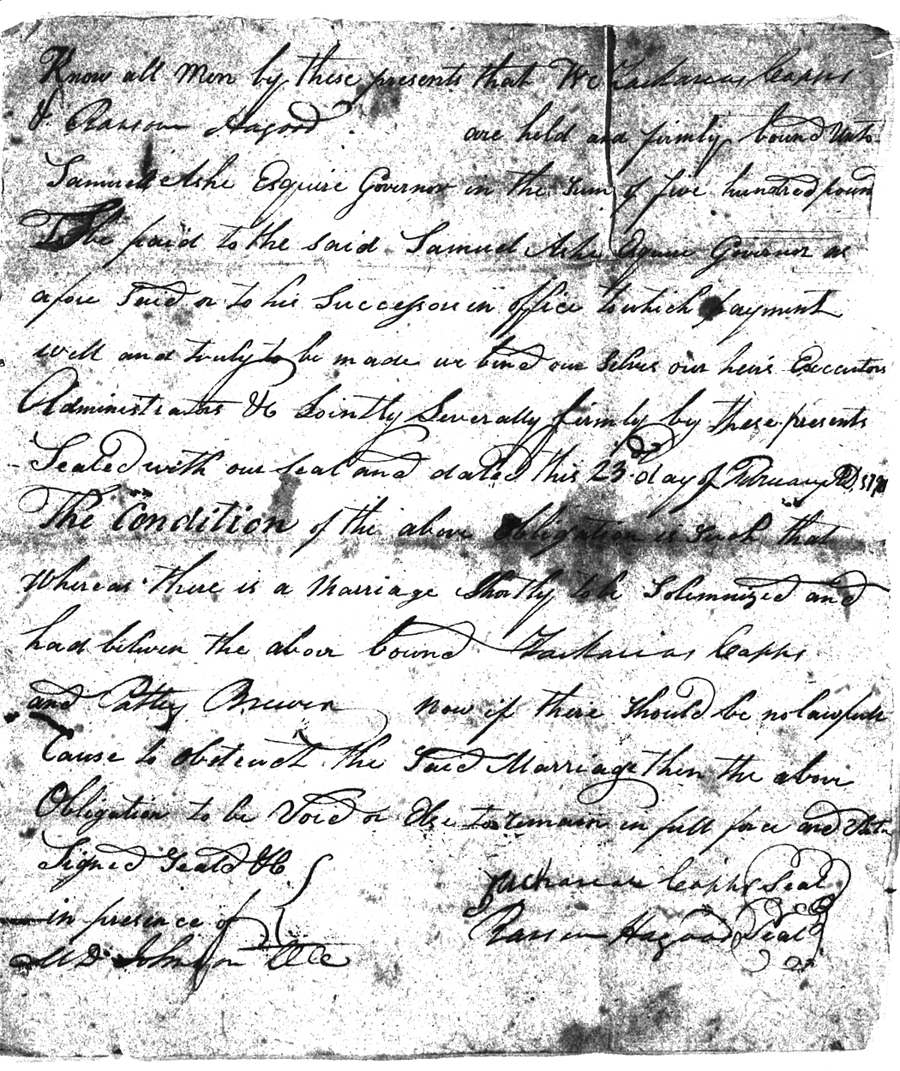 Know all Men by these presents that We Zacharias Capps
& Ransom Hagood are held and firmly bound Unto
Samuel Ashe Esquire Governor in the Sum of five hundred pound
To be paid to the said Samuel Ashe Esquire Governor as
afore Said or to his Successors in office to which payment
well and truly to be made we bind our Selves our heirs Executors
Administrators &c Jointly Severally firmly by these presents
Sealed with our Seal and dated this 23rd day of February AD
The Condition of the above Obligation is Such that
Whereas there is a Marriage Shortly to be Solemnized and
had between the above bound Zacharias Capps
and Patty Brewer now if there Should be no lawfull
Cause to obstruct the Said Marriage then the above
Obligation to be Void or Else to remain in full force and
Signed Seald &c
Zacharias Capps Seal
in presence of
Ransom Hagood Seal
Johnson